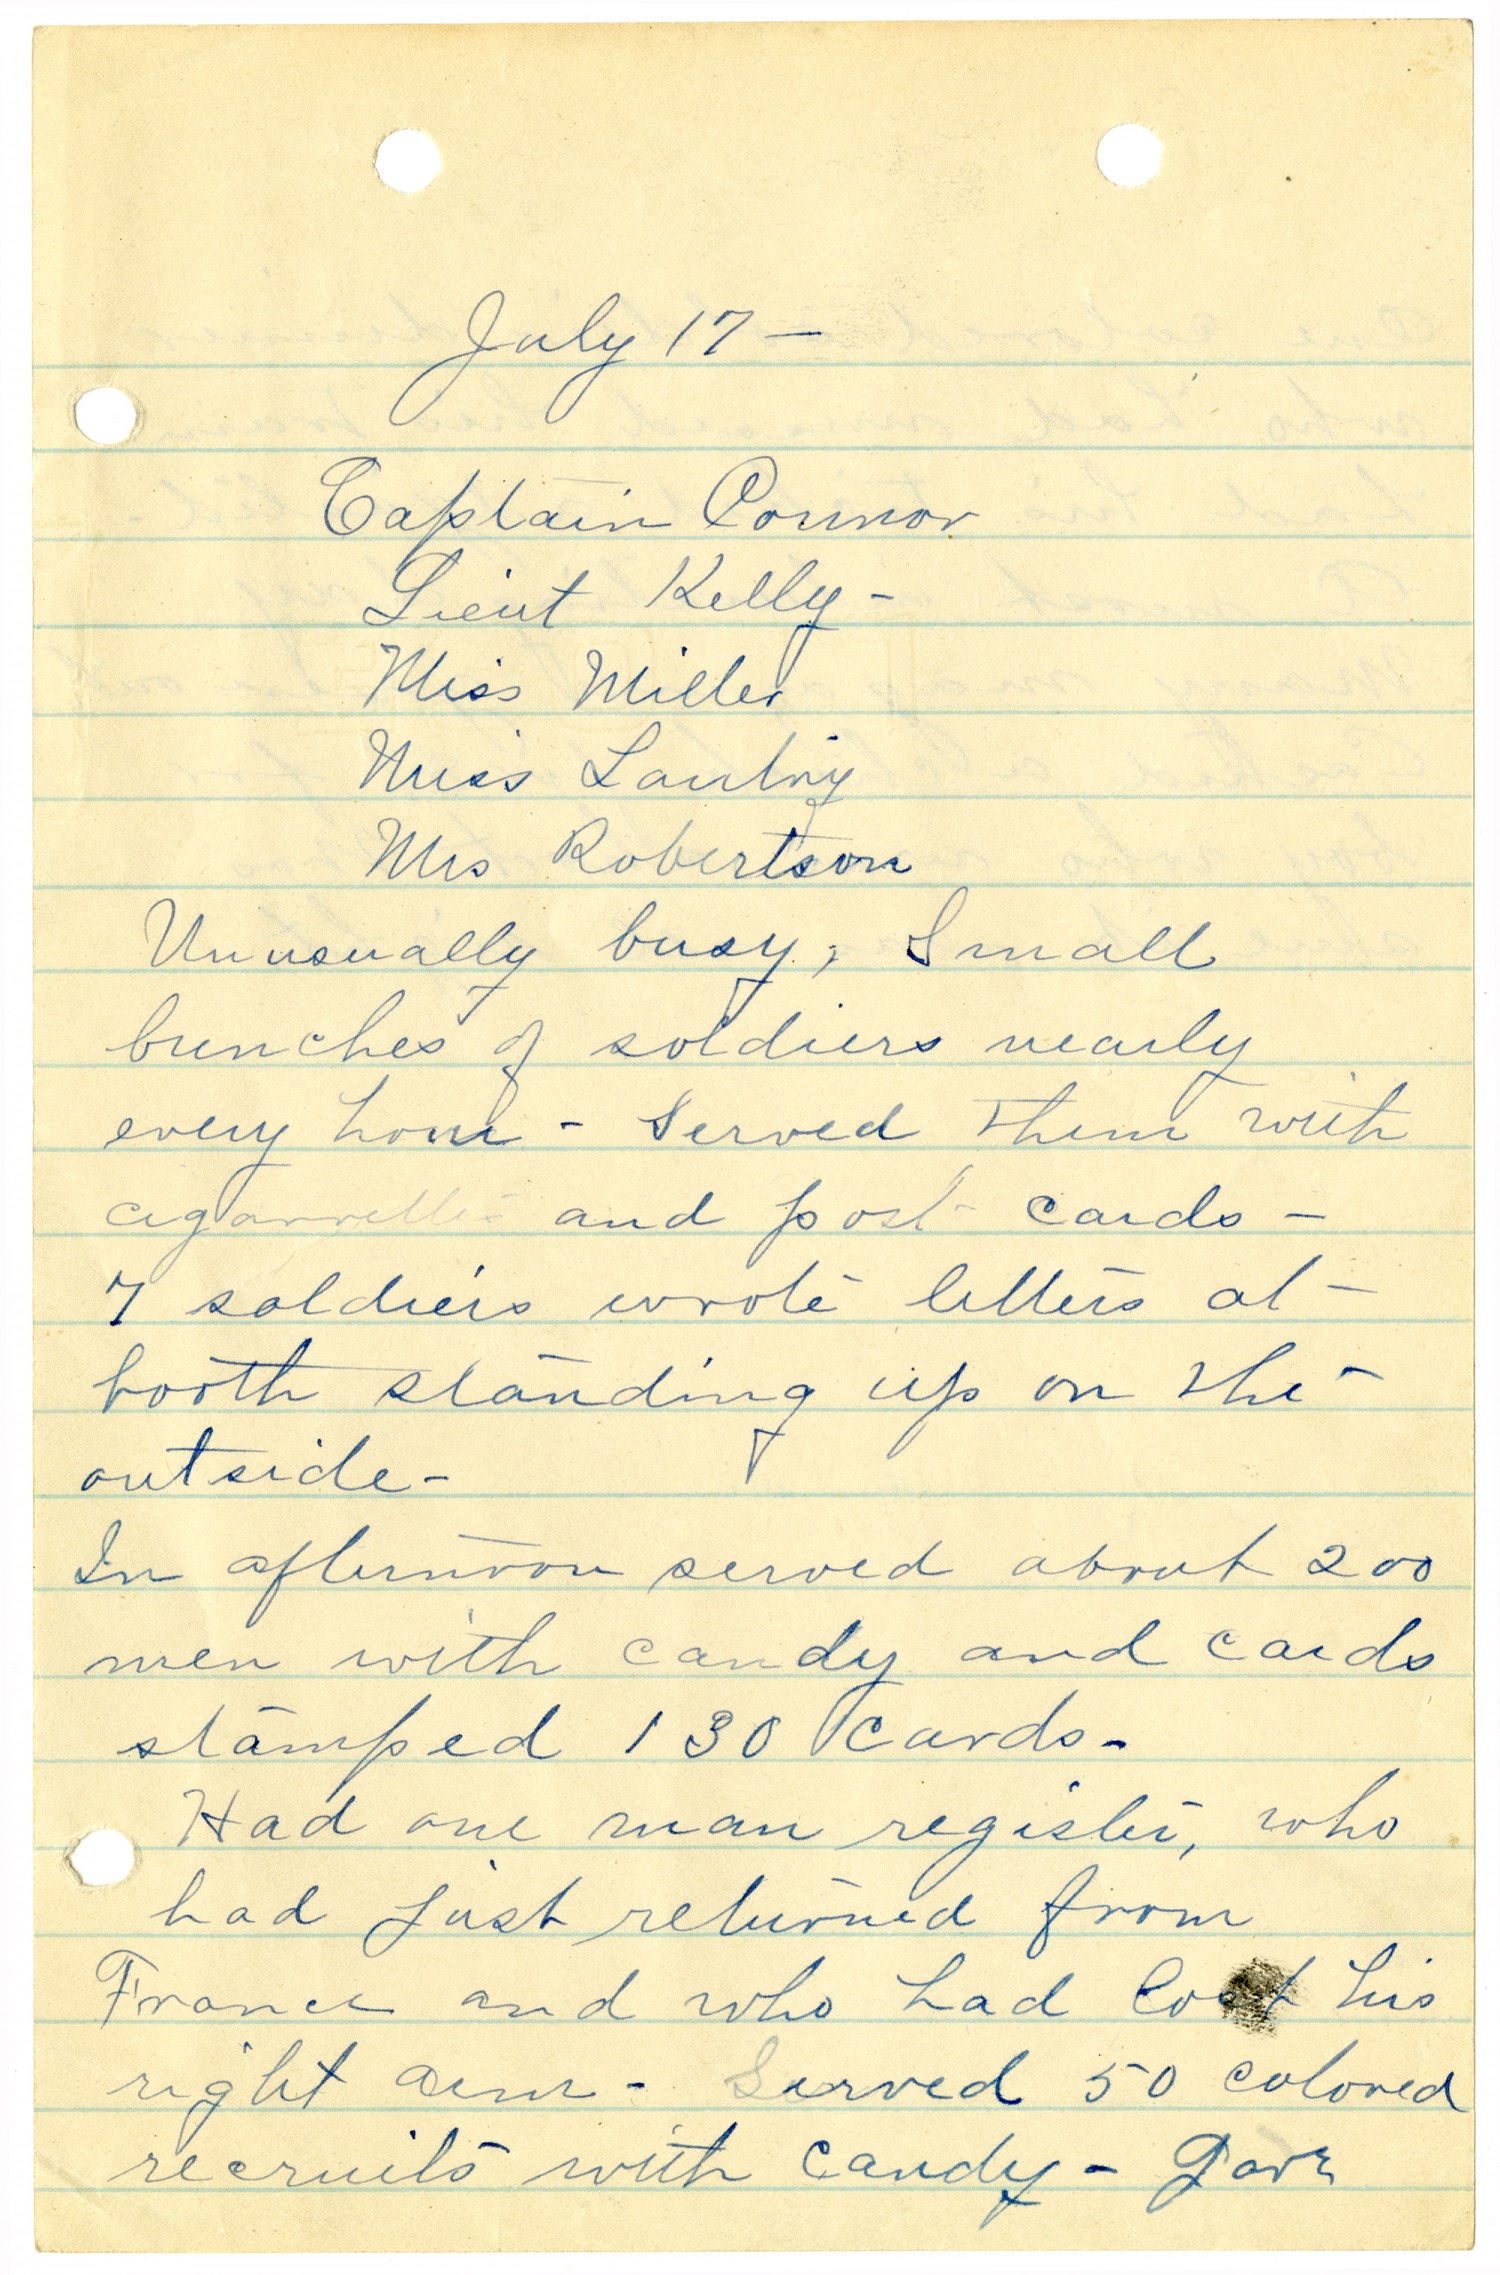 July 17 —
Captain Connor
Lieut Kelly -
Miss Miller
Miss Landry
Mrs Robertson
Unusually busy, Small
bunches of soldiers nearly
every hour - Served them with
cigarrettes and post cards -
7 soldiers wrote letters at
booth standing up on the
outside -
In afternoon served about 200
men with candy and cards
stamped 130 cards -
Had one man register, who
had just returned from
France and who had lost his
right arm - Served 50 colored
recruits with candy - Gave